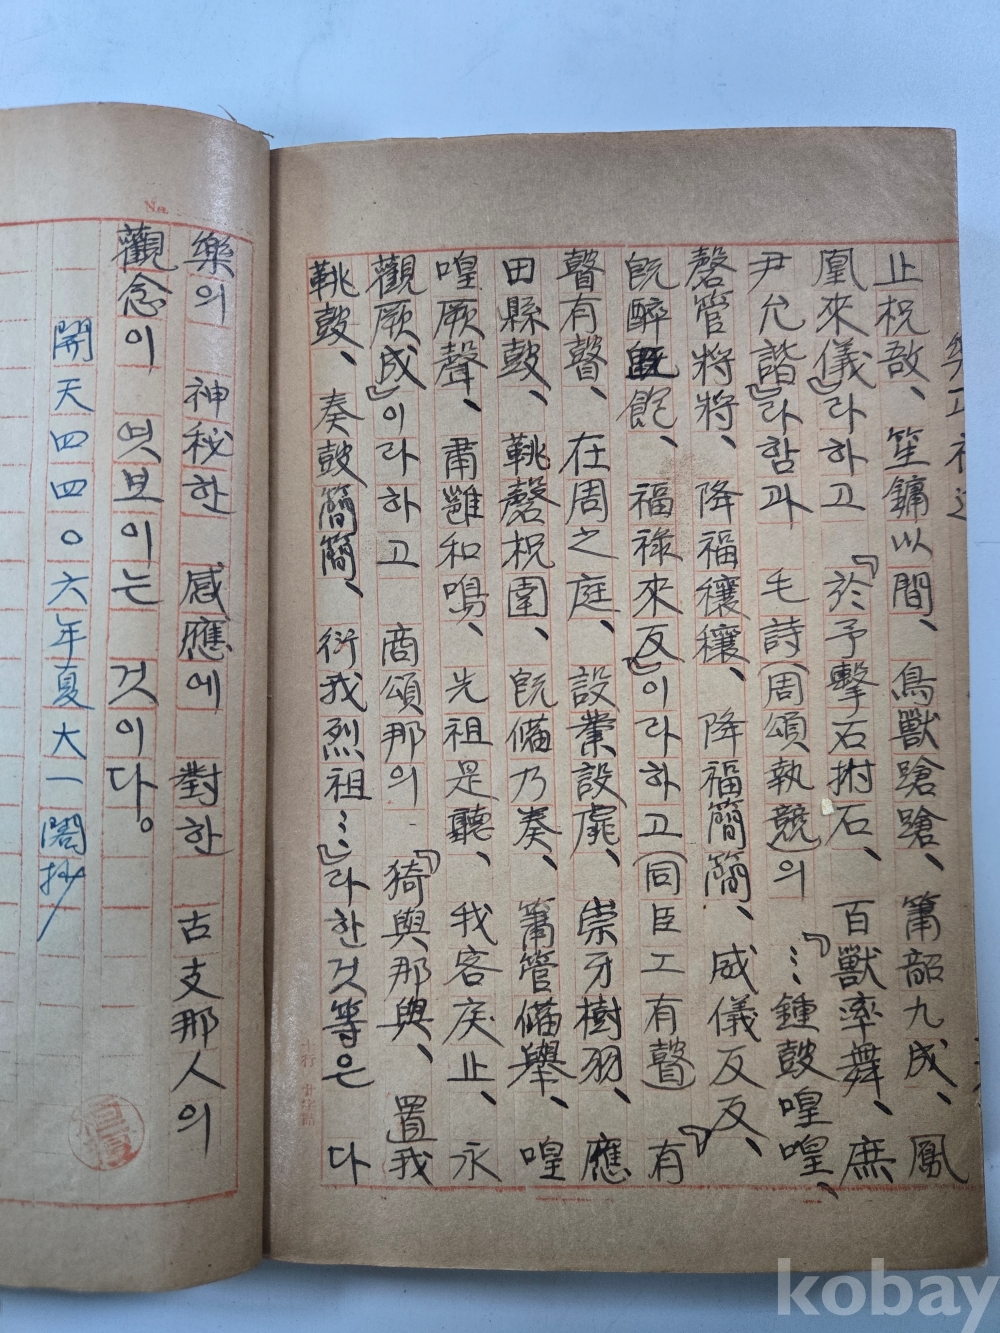 止柷敔、笙鏞以間、鳥獸蹌蹌、簫韶九成、鳳
凰來儀』라하고『於予擊石拊石、百獸率舞、庶
尹允諧』라함과 毛詩(周頌執競)의『…鍾鼓喤喤、
磬管將將、降福穰穰、降福簡簡、威儀反反、
旣醉旣飽、福祿來反』이라하고(同臣工有瞽)『有
瞽有瞽、在周之庭、設業設虡、崇牙樹羽、應
田縣鼓、鞉磬柷圉、旣備乃奏、簫管備擧、喤
喤厥聲、肅雝和鳴、先祖是聽、我客戾止、永
觀厥成』이라하고 商頌那의『猗與那與、置我
鞉鼓、奏鼓簡簡、衎我烈祖…』라한것等은 다
樂의 神秘한 感應에 對한 古支那人의
觀念이 엿보이는 것이다。
開天四四〇六年夏大一閣抄
No.
十行 廿
kobay